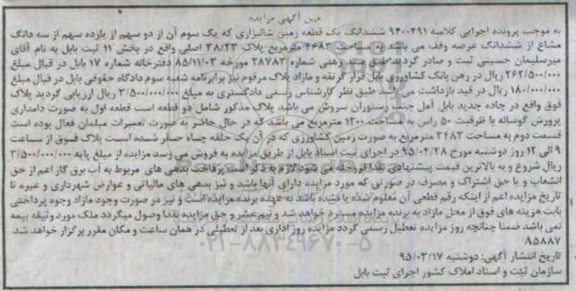 متن آگهی مزایده
به موجب پرونده اجرایی کلاسه ۹۴۰۰۴۹۱ ششدانگ یک قطعه زمین شالیزاری که یک سوم آن از دو سهم از یازده سهم از سه دانگ
مشاع از ششدانگ عرصه وقف می باشد به مساحت ۴۶۸۳ مترمربع پلاک ۳۸/۲۳ اصلی واقع در بخش ۱۱ ثبت بابل به نام آقای
میرسلیمان حسینی ثبت و صادر گردیده طبق سند رهنی شماره ۲۸۷۸۳ مورخه ۸۵/۱۱/۰۳ دفترخانه شماره ۱۷ بابل در قبال مبلغ
۲۶۳/۵۰۰/۰۰۰ ریال در رهن بانک کشاورزی بابل قرار گرفته و مازاد پلاک مرقوم نیز برابرنامه شعبه سوم دادگاه حقوقی بابل در قبال مبلغ
۱۸۰/۰۰۰/۰۰۰ ریال در قید بازداشت می باشد طبق نظر کارشناس رسمی دادگستری به مبلغ ۳/۵۰۰/۰۰۰/۰۰۰ ریال ارزیابی گردید پلاک
فوق واقع در جاده جدید بابل آمل جنب رستوران سروش می باشد پلاک مذکور شامل دو قطعه است قطعه اول به صورت دامداری
پرورش گوساله با ظرفیت ۵۰ راس به مساحت ۱۲۰۰ مترمربع می باشد که در حال حاضر به صورت تعمیرات مبلمان فعال بوده است
قسمت دوم به مساحت ۳۴۸۳ مترمربع به صورت زمین کشاورزی که در آن یک حلقه چاه حفر شده است پلاک فوق از ساعت
۹ الی ۱۲ روز دوشنبه مورخ ۹۵/۰۴/۲۸ در اجرای ثبت اسناد بابل از طریق مزایده به فروش می رسد مزایده از مبلغ پایه ۳/۵۰۰/۰۰۰/۰۰۰
ریال شروع و به بالاترین قیمت پیشنهادی نقدا فروخته می شود لازم به ذکر است پرداخت بدهی های مربوط به آب برق گاز اعم از حق
انشعاب و یا حق اشتراک و مصرف در صورتی که مورد مزایده دارای آنها باشد و نیز بدهی های مالیاتی و عوارض شهرداری و غیره تا
تاریخ مزایده اعم از اینکه رقم قطعی آن معلوم شده یا نشده باشد به عهده برنده مزایده است و نیز در صورت وجود مازاد وجوه پرداختی
بابت هزینه های فوق از محل مازاد به برنده مزایده مسترد خواهد شد و نیم عشر و حق مزایده نقدا وصول میگردد ملک مورد وثیقه بیمه
نمی باشد ضمنا چنانچه روز مزایده تعطیل رسمی گردد مزایده روز اداری بعد از تعطیلی در همان ساعت و مکان مقرر برگزار خواهد شد
۹۵۸۸۷
تاریخ انتشار آگهی: دوشنبه ۹۵/۰۳/۱۷
سازمان ثبت و اسناد املاک کشور اجرای ثبت بابل
۰۲۱-۸۸۳۴۹۶۷۰-۵